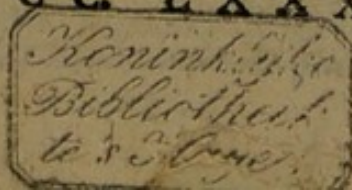 CC. LXXX
Koninklijke
Bibliotheek
te 's Hage.